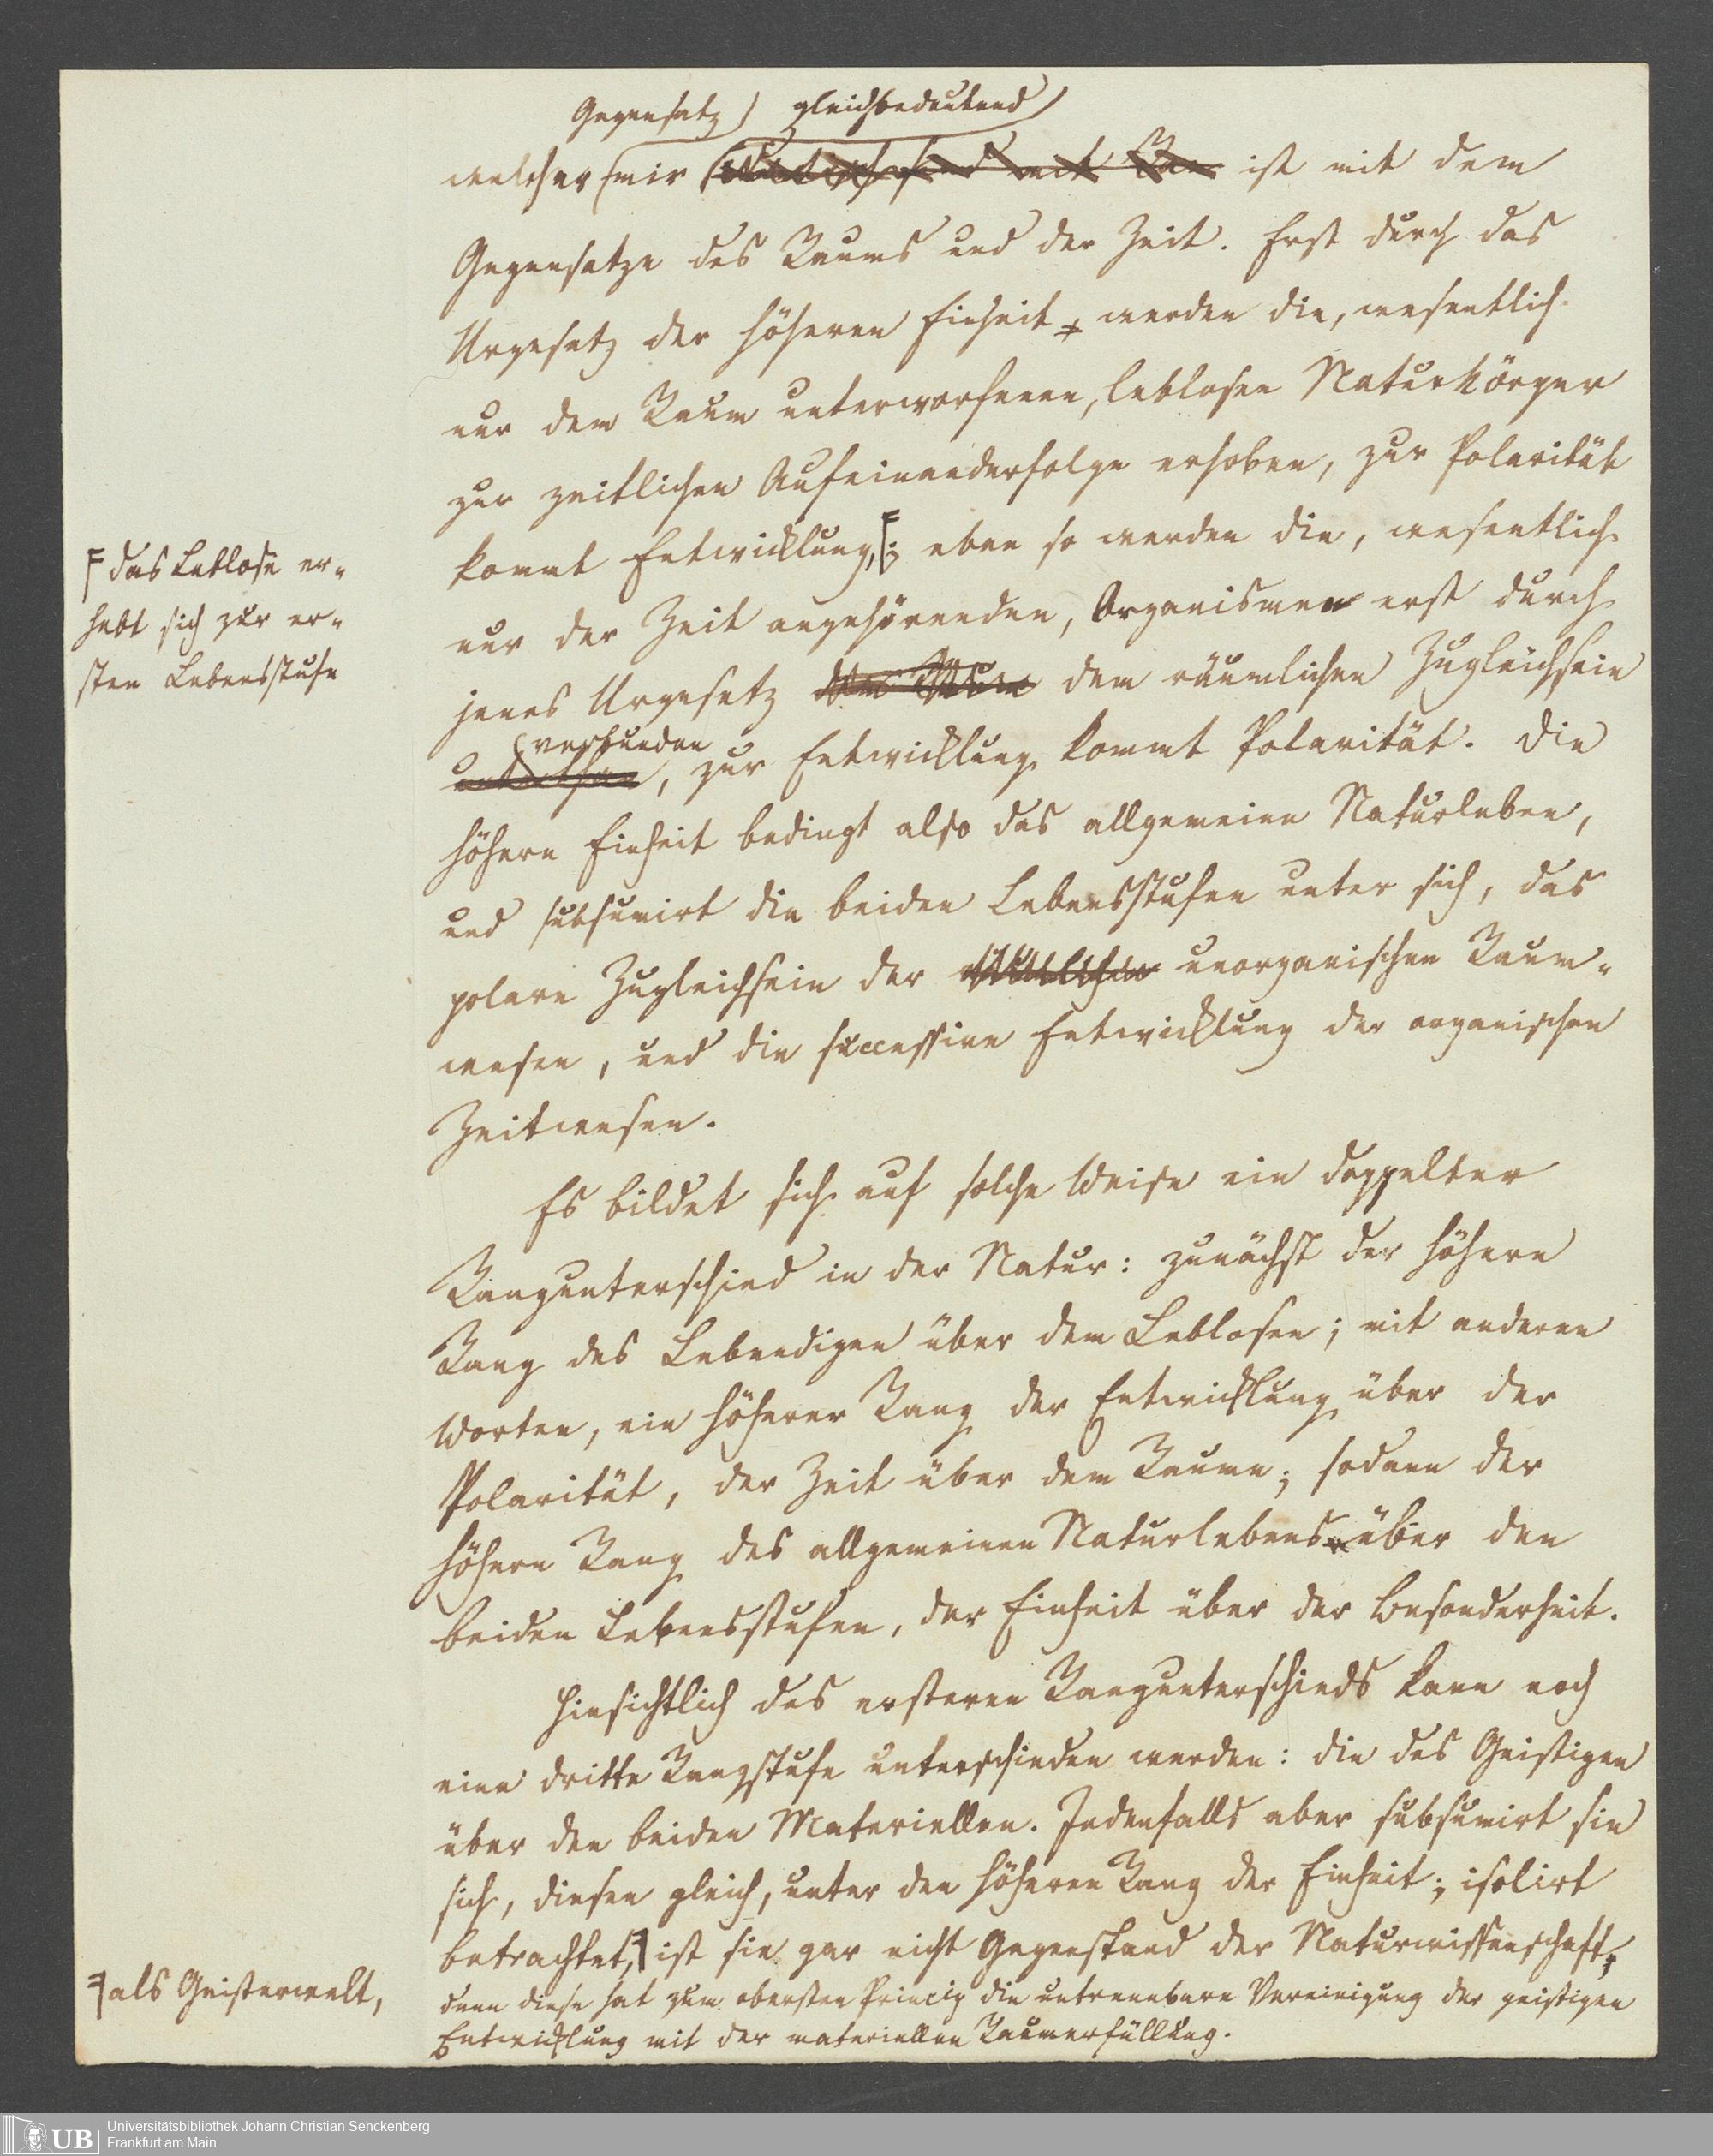 Gegensatz gleichbedeutend
welcher mir ist mit dem
Gegensatze des Raums und der Zeit. Erst durch das
Urgesetz der höheren Einheit werden die, wesentlich
nur dem Raum unterworfenen, leblosen Naturkörper
zur zeitlichen Aufeinanderfolge erhoben, zur Polarität
kommt Entwicklung,; eben so werden die, wesentlich
das Leblose er-
hebt sich zur er-
sten Lebensstufe
nur der Zeit angehörenden, Organismen erst durch
jenes Urgesetz dem räumlichen Zugleichsein
verbunden
, zur Entwicklung kommt Polarität. Die
höhere Einheit bedingt also das allgemeine Naturleben,
und subsumirt die beiden Lebensstufen unter sich, das
polare Zugleichsein der unorganischen Raum-
wesen, und die successive Entwicklung der organischen
Zeitwesen.
Es bildet sich auf solche Weise ein doppelter
Rangunterschied in der Natur: zunächst der höhere
Rang des Lebendigen über dem Leblosen; mit anderen
Worten, ein höherer Rang der Entwicklung über der
Polarität, der Zeit über dem Raume; sodann der
höhere Rang des allgemeinen Naturlebens über den
beiden Lebensstufen, der Einheit über der Besonderheit.
Hinsichtlich des ersteren Rangunterschieds kann noch
eine dritte Rangstufe unterschieden werden: die des Geistigen
über den beiden Materiellen. Jedenfalls aber subsumirt sie
sich, diesen gleich, unter den höheren Rang der Einheit; isolirt
betrachtet, ist sie gar nicht Gegenstand der Naturwissenschaft;
als Geisterwelt,
denn diese hat zum obersten Princip die untrennbare Vereinigung der geistigen
Entwicklung mit der materiellen Raumerfüllung.
UB
Universitätsbibliothek Johann Christian Senckenberg
Frankfurt am Main